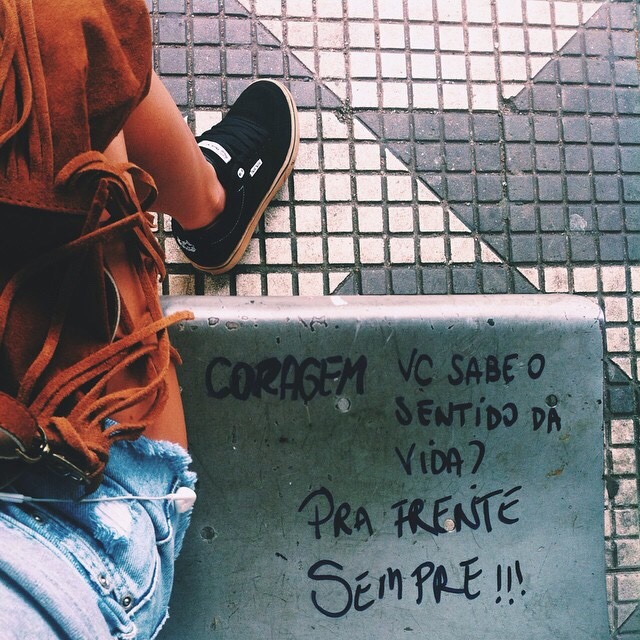 CORAGEM VC SABE O
SENTIDO DA
VIDA?
PRA FRENTE
SEMPRE!!!